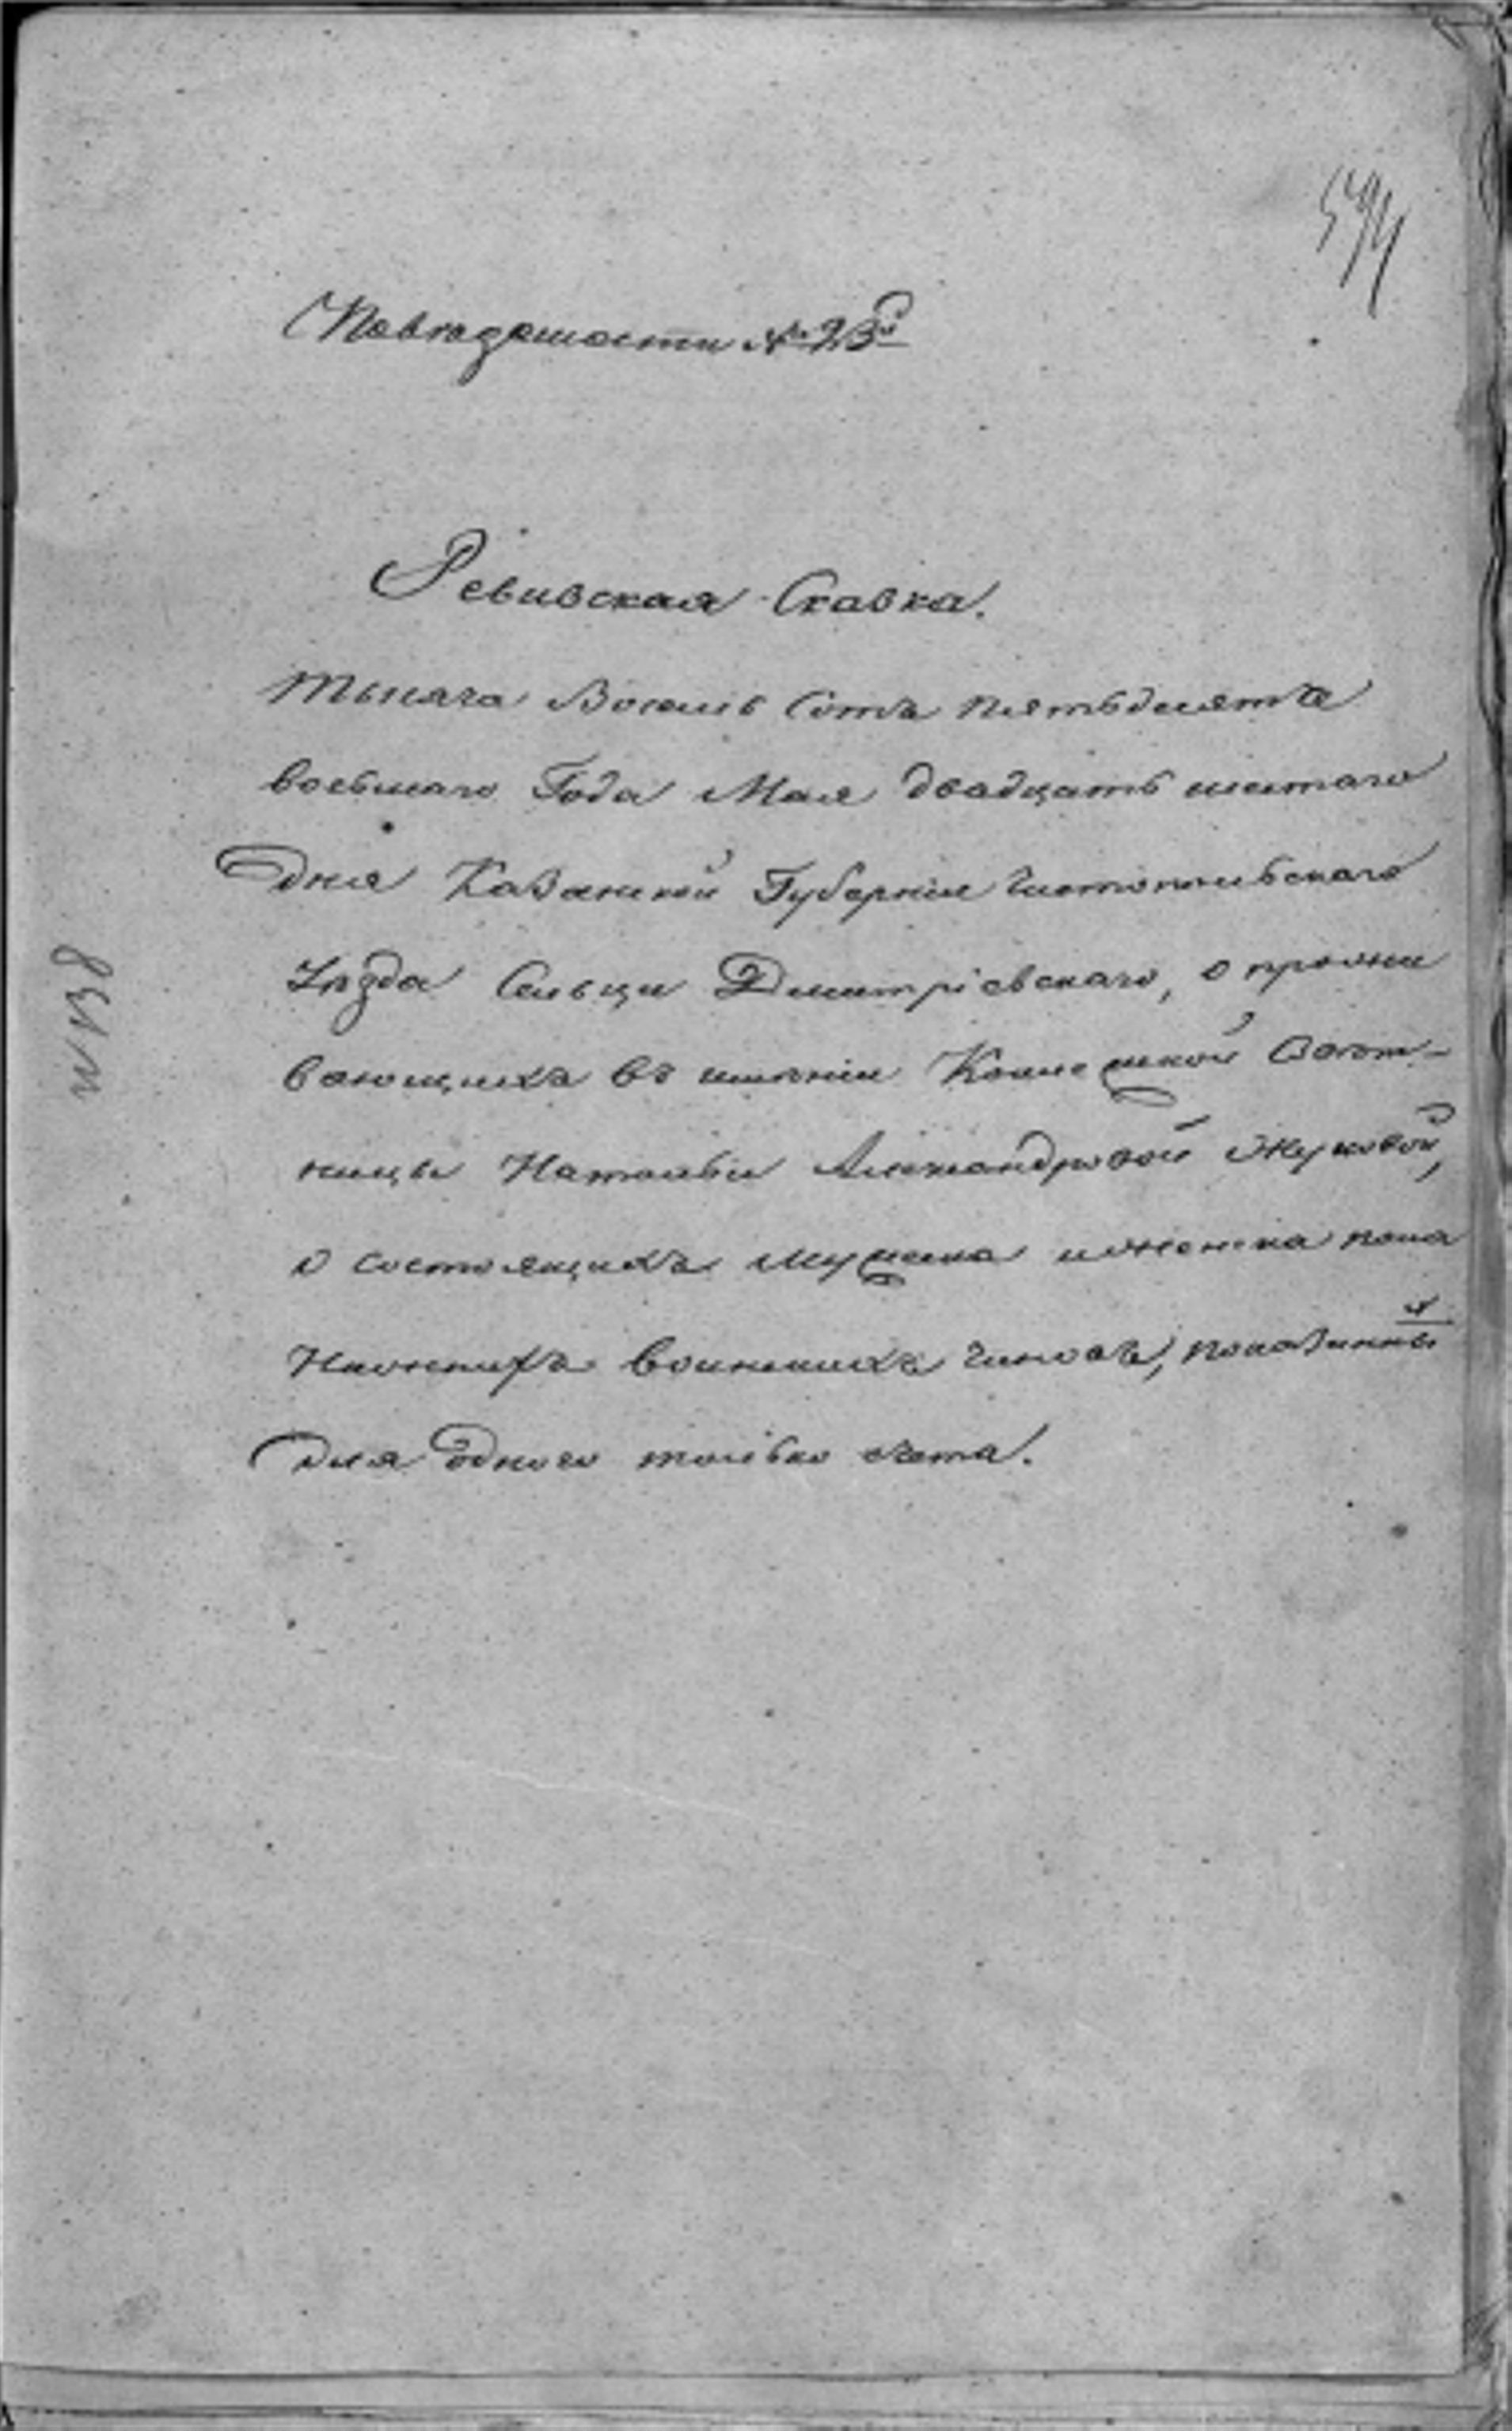 594
По вгодешности № 23й
Ревизская Сказка.
Тысяча Восемь Сотъ пятьдесятъ
восьмаго Года Мая двадцать шестаго
дня Казанской Губерніи Чистопольскаго
Уѣзда Сельца Димитріевскаго, о прожи
вающихъ въ имѣніи Коллежской Совѣт-
ницы Натальи Александровой Жуковой,
о состоящихъ мужеска и женска пола
Нижнихъ воинскихъ чиновъ, показанны х
для одного только счета.
N 138